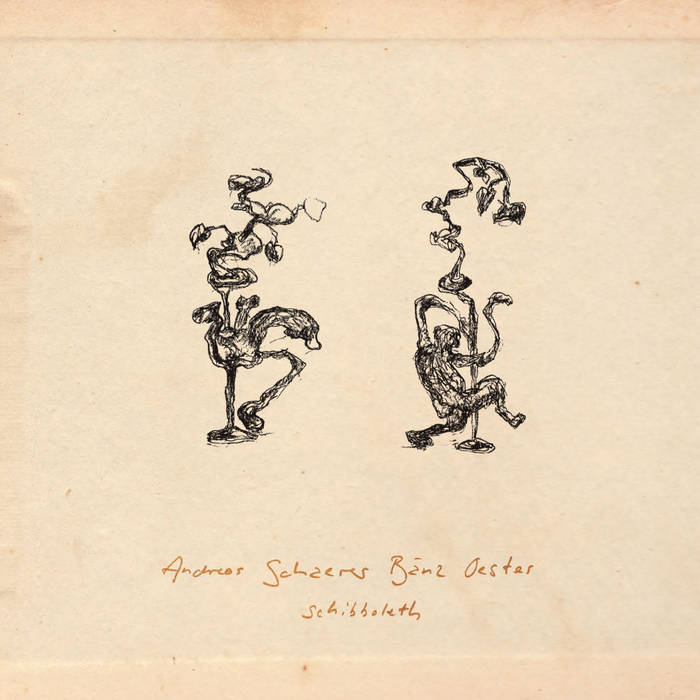 Andreas Schaerer Bänz Oester
Schibboleth